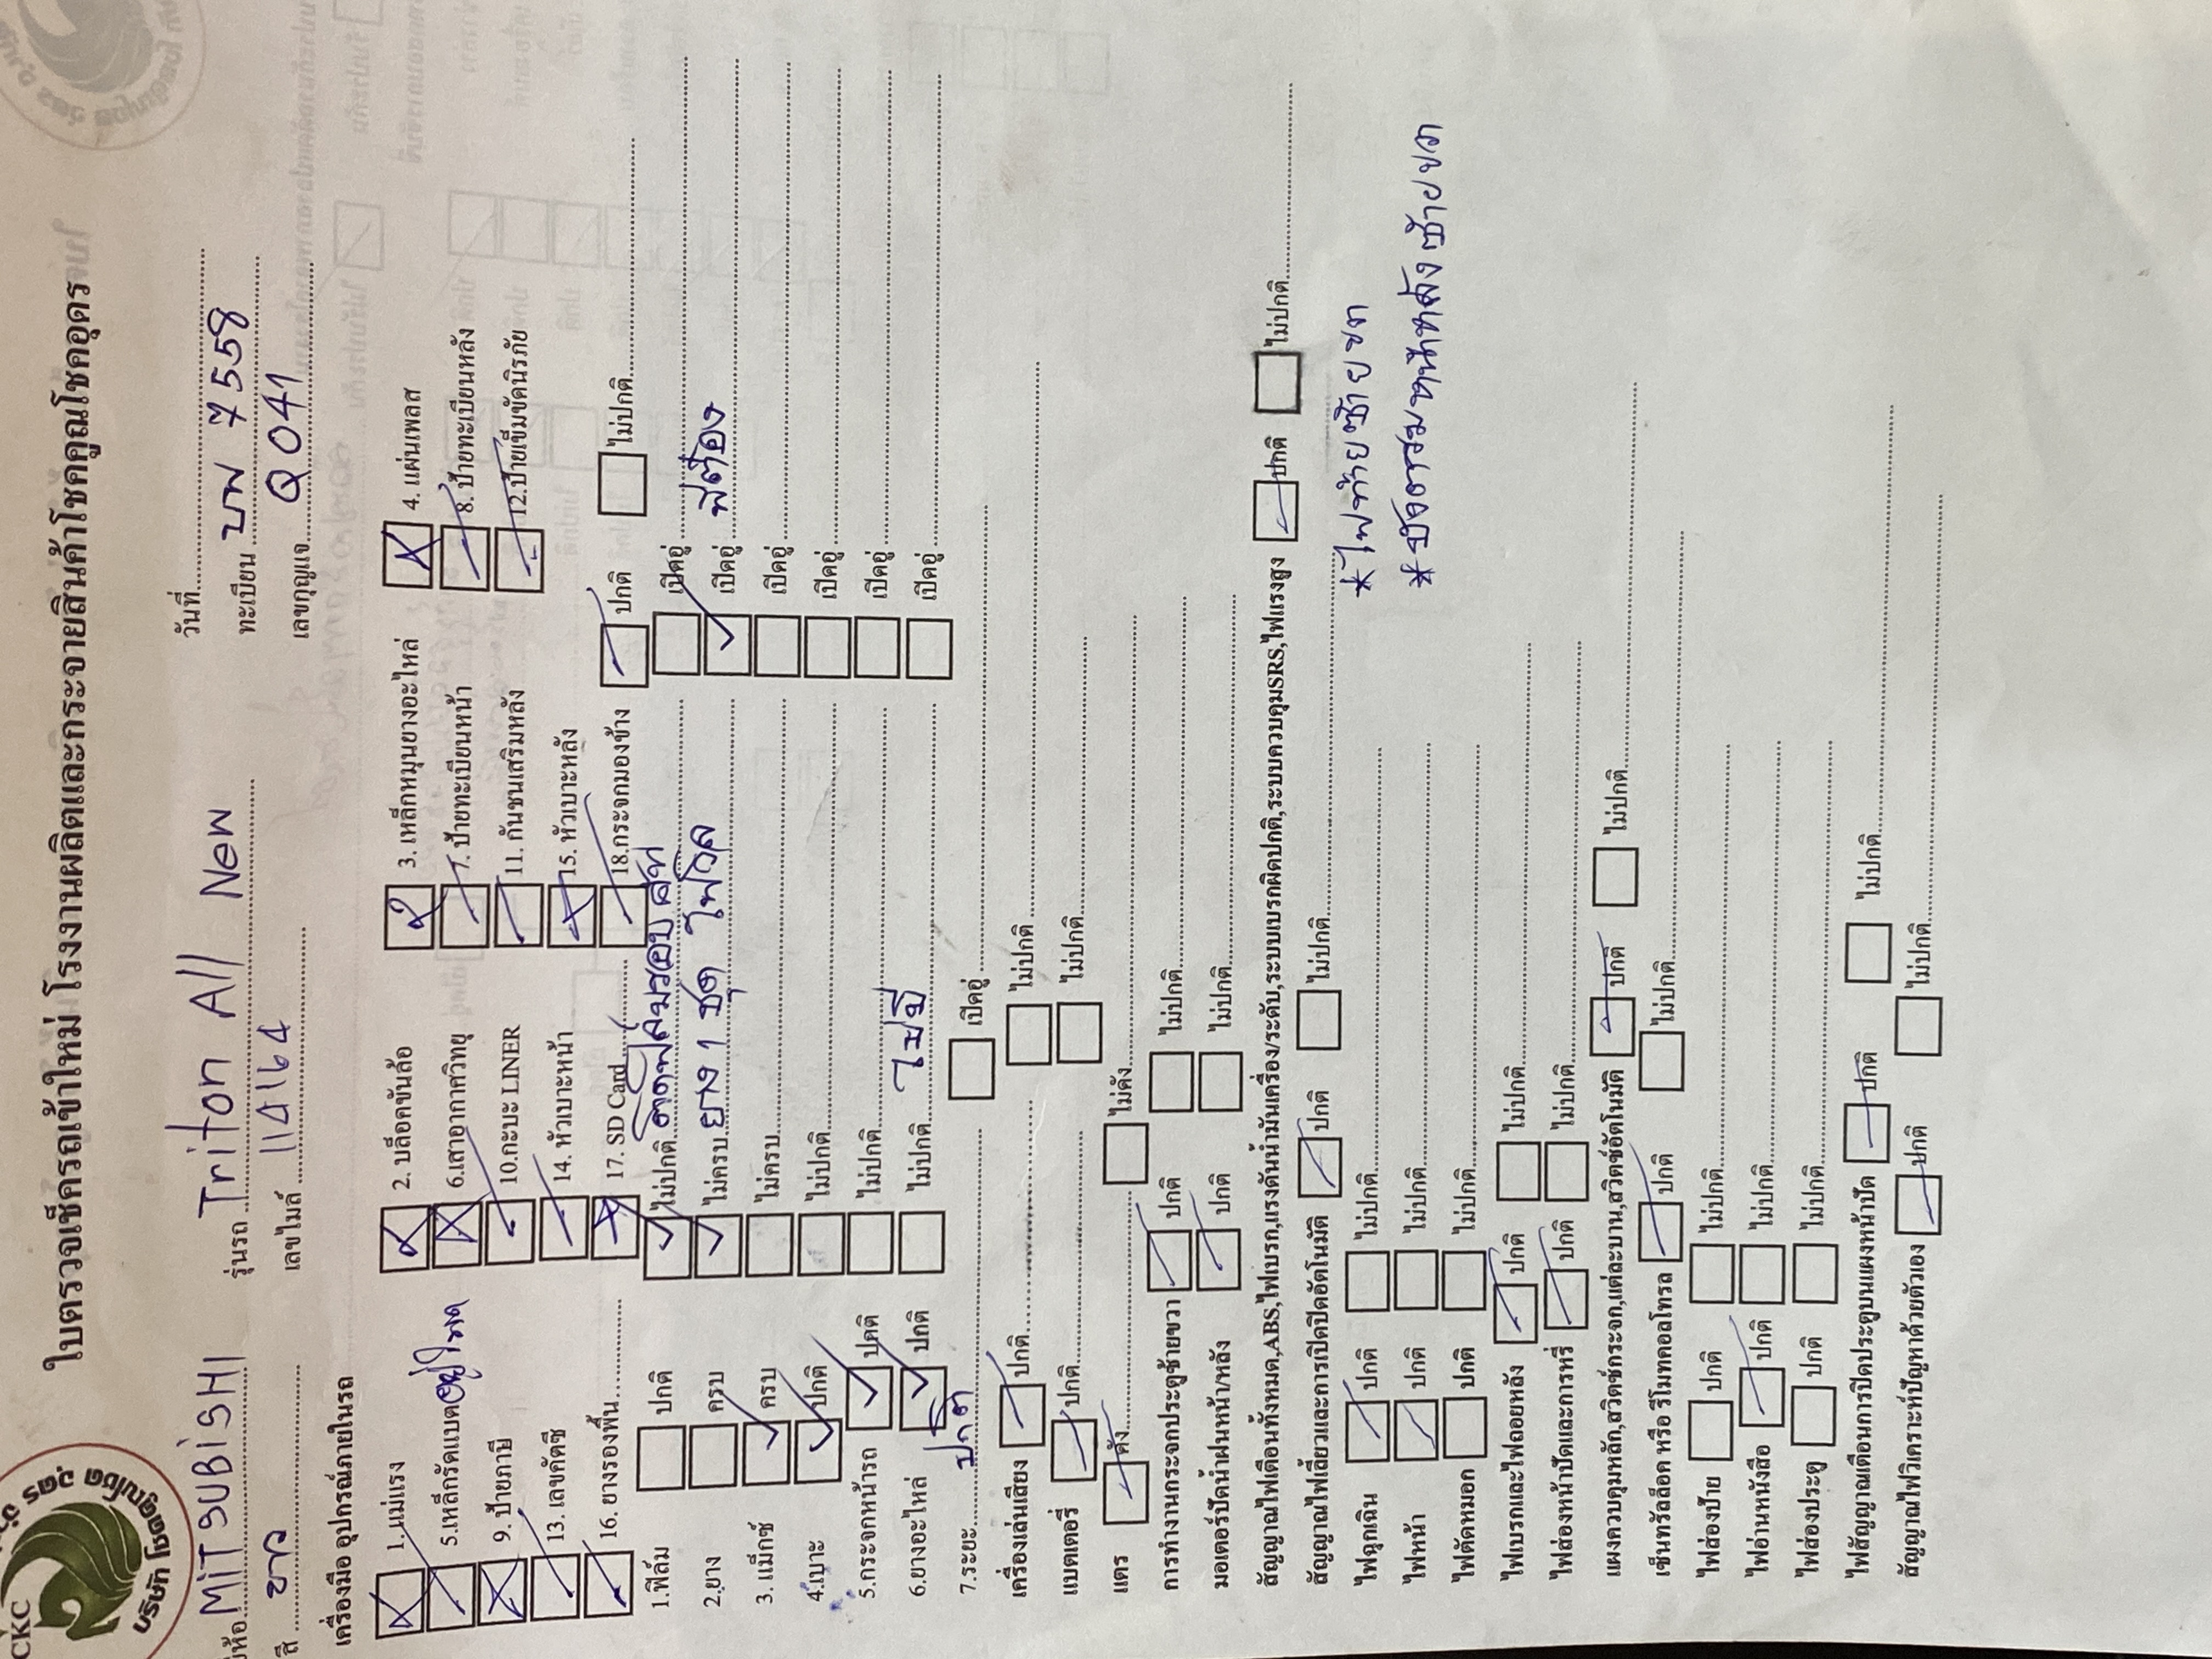 CKC
ใบตรวจเช็ครถเข้าใหม่ โรงงานผลิตและกระจายสินค้าโชคคูณโชคอุดร
วันที่
ยี่ห้อ MITSUBISHI รุ่นรถ Triton All New ทะเบียน บพ 7558
สี ขาว เลขไมล์ 114164 เลขกุญแจ Q041
เครื่องมือ อุปกรณ์ภายในรถ
1.แม่แรง 2. บล็อคขันล้อ 3. เหล็กหมุนยางอะไหล่ 4. แผ่นเพลส
5.เหล็กรัดแบต 6.เสาอากาศวิทยุ 7. ป้ายทะเบียนหน้า 8. ป้ายทะเบียนหลัง
9. ป้ายภาษี 10.กะบะ LINER 11. กันชนเสริมหลัง 12.ป้ายเข็มขัดนิรภัย
13. เลขคัคซี 14. หัวเบาะหน้า 15. หัวเบาะหลัง
16. ยางรองพื้น 17. SD Card 18.กระจกมองข้าง ปกติ ไม่ปกติ
1.ฟิล์ม ปกติ ไม่ปกติ ติดฟิล์มรอบคัน เปิดอู่
2.ยาง ครบ ไม่ครบ ยาง 1 ชุด เปิดอู่
3. แม็กซ์ ครบ ไม่ครบ เปิดอู่
4.เบาะ ปกติ ไม่ปกติ เปิดอู่
5.กระจกหน้ารถ ปกติ ไม่ปกติ เปิดอู่
6.ยางอะไหล่ ปกติ ไม่ปกติ ไม่มี เปิดอู่
7.ระยะ ปกติ เปิดอู่
เครื่องเล่นเสียง ปกติ ไม่ปกติ
แบตเตอรี่ ปกติ ไม่ปกติ
แตร ดัง ไม่ดัง
การทำงานกระจกประตูซ้ายขวา ปกติ ไม่ปกติ
มอเตอร์ปัดน้ำฝนหน้า/หลัง ปกติ ไม่ปกติ
สัญญาณไฟเตือนทั้งหมด,ABS,ไฟเบรก,แรงดันน้ำมันเครื่อง/ระดับ,ระบบเบรกผิดปกติ,ระบบควบคุมSRS,ไฟแรงสูง ปกติ ไม่ปกติ
สัญญาณไฟเลี้ยวและการเปิดปิดอัตโนมัติ ปกติ ไม่ปกติ
ไฟฉุกเฉิน ปกติ ไม่ปกติ
* ไฟท้ายซ้ายขวา
ไฟหน้า ปกติ ไม่ปกติ
ไฟตัดหมอก ปกติ ไม่ปกติ
ไฟเบรกและไฟถอยหลัง ปกติ ไม่ปกติ
ไฟส่องหน้าปัดและการหรี่ ปกติ ไม่ปกติ
แผงควบคุมหลัก,สวิตช์กระจก,แต่ละบาน,สวิตช์อัตโนมัติ ปกติ ไม่ปกติ
เซ็นทรัลล็อค หรือ รีโมทคอลโทรล ปกติ ไม่ปกติ
ไฟส่องป้าย ปกติ ไม่ปกติ
ไฟอ่านหนังสือ ปกติ ไม่ปกติ
ไฟส่องประตู ปกติ ไม่ปกติ
ไฟสัญญาณเตือนการปิดประตูบนแผงหน้าปัด ปกติ ไม่ปกติ
สัญญาณไฟวิเคราะห์ปัญหาด้วยตัวเอง ปกติ ไม่ปกติ